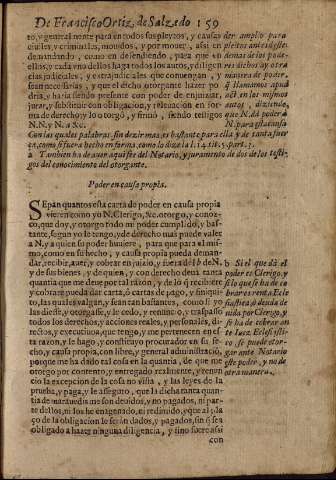 De Francisco Ortiz de Salzedo 159
to, y generalmente para en todos sus pleytos, y causas
ciuiles, y criminales, mouidos, y por mouer, assi en
demandando, como en defendiendo, para que en
ellos, y cada vno dellos haga todos los autos, y diligen
cias judiciales, y extrajudiciales que conuengan, y
sean necessarias, y que el dicho otorgante hazer po
dria, y haria siendo presente con poder de enjuiziar,
jurar, y substituir con obligacion, y releuacion en for
ma de derecho y lo otorgò, y firmò, siendo testigos
N.N. y N. a &c.
der amplio para
pleitos ante juezes
demas de los pode
res dichos ay otra
manera de poder,
q̃ llamamos apud
act en los mismos
autos, diziendo,
que N. dà poder a
N. para esta causa
Con las quales palabras, sin dezir mas es bastante para ella y de tanta fuer
ça, como si fuera hecho en forma, como lo dize la l. 14. tit. 5. part. 3.
a Tambien ha de auer aqui fee del Notario, y juramento de dos de los testi
gos del conocimiento del otorgante.
Poder en causa propia.
SEpan quantos esta carta de poder en causa propia
vieren como yo N. Clerigo, &c. otorgo, y conoz-
co, que doy, y otorgo todo mi poder cumplido, y bas-
tante, segun yo le tengo, y de derecho mas puede valer
a N. y a quien su poder huuiere, para que para el mis-
mo, como en su hecho, y causa propia pueda deman-
dar, recibir, auer, y cobrar en juizio, y fuera dèl b de N.
y de sus bienes, y de quien, y con derecho deua tanta
quantia que me deue por tal razon, y de lo q̃ recibiere
y cobrare pueda dar carta, ò cartas de pago, y finiqui-
to, las quales valgan, y sean tan bastantes, como si yo
las diesse, y otorgasse, y le cedo, y renuncio, y traspasso
todos los derechos, y acciones reales, y personales, di-
rectos, y executiuos, que tengo, y me pertenecen en es
ta razon, y le hago, y constituyo procurador en su he-
cho, y causa propia, con libre, y general administraciõ,
porque me ha dado tal cosa en la quantia, de que me
otorgo por contento, y entregado realmente, y renun
cio la excepcion de la cosa no vista, y las leyes de la
prueba, y paga, y le asseguro, que la dicha tanta quan-
tia de marauedis me son deuidos, y no pagados, ni par-
te dellos, ni los he enagenado, ni redimido, y que al pla
zo de la obligacion le seràn dados, y pagados, sin q̃ sea
obligado a hazer ninguna diligencia, y sino fuere assi
con
b Si el que dà el
poder es Clerigo, y
si lo que se ha de co
brar es renta Ecle
siastica ò deuda de
vida por Clerigo, y
si ha de cobrar an
te luez Eclesiasti-
co, se puede otor-
gar ante Notario
este poder, y no de
otra manera.